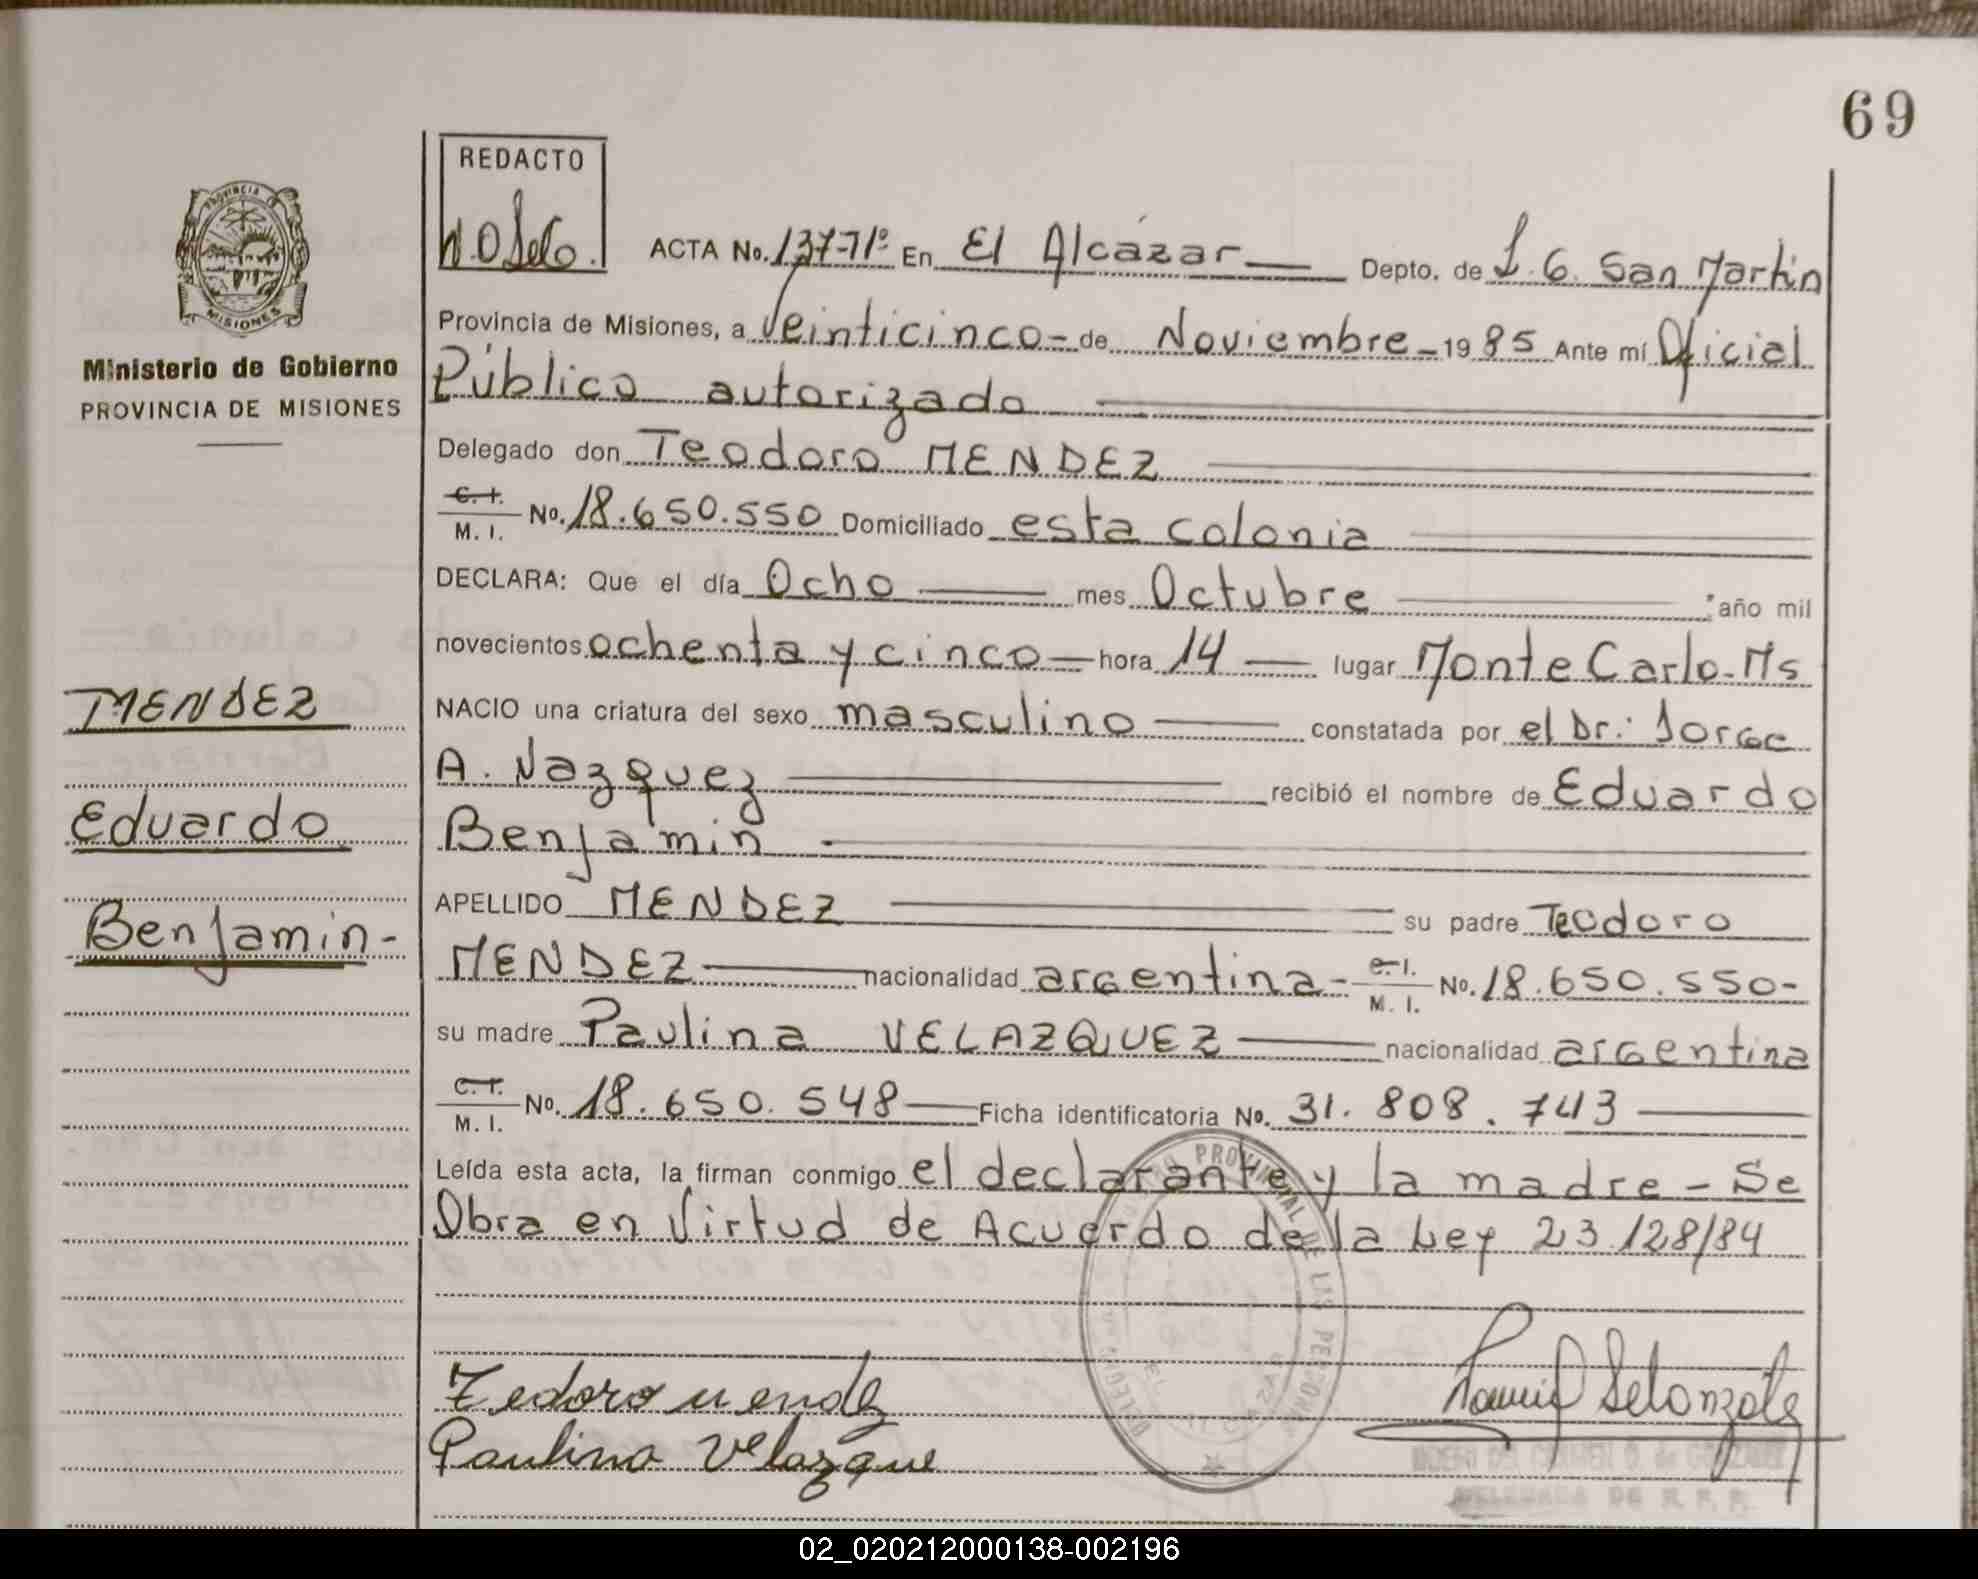 69
REDACTO
PROVINCIA
MISIONES
Ministerio de Gobierno
PROVINCIA DE MISIONES
ACTA No. 137-Tº En El Alcázar Depto. de L. G. San Martin
Provincia de Misiones, a Veinticinco - de Noviembre - 1985 Ante mí Oficial
Público autorizado
Delegado don Teodoro MENDEZ
C. I. M. I. No. 18.650.550 Domiciliado esta colonia
DECLARA: Que el día Ocho mes Octubre año mil
novecientos ochenta y cinco hora 14 lugar Monte Carlo - Ms
NACIO una criatura del sexo masculino constatada por el Dr: Jorge
A. Vazquez recibió el nombre de Eduardo
Benjamin
APELLIDO MENDEZ su padre Teodoro
MENDEZ nacionalidad argentina - C. I. M. I. No. 18.650.550-
su madre Paulina VELAZQUEZ nacionalidad argentina
C. I. M. I. No. 18.650.548 Ficha identificatoria No. 31.808.743
Leída esta acta, la firman conmigo el declarante y la madre - Se
Obra en Virtud de Acuerdo de la Ley 23.128/84
MENDEZ
Eduardo
Benjamin-
Teodoro mendez
Paulina Velazque
PROVINCIAL DE LAS PERSONAS
DELEGADA DE R. P. P.
02_020212000138-002196